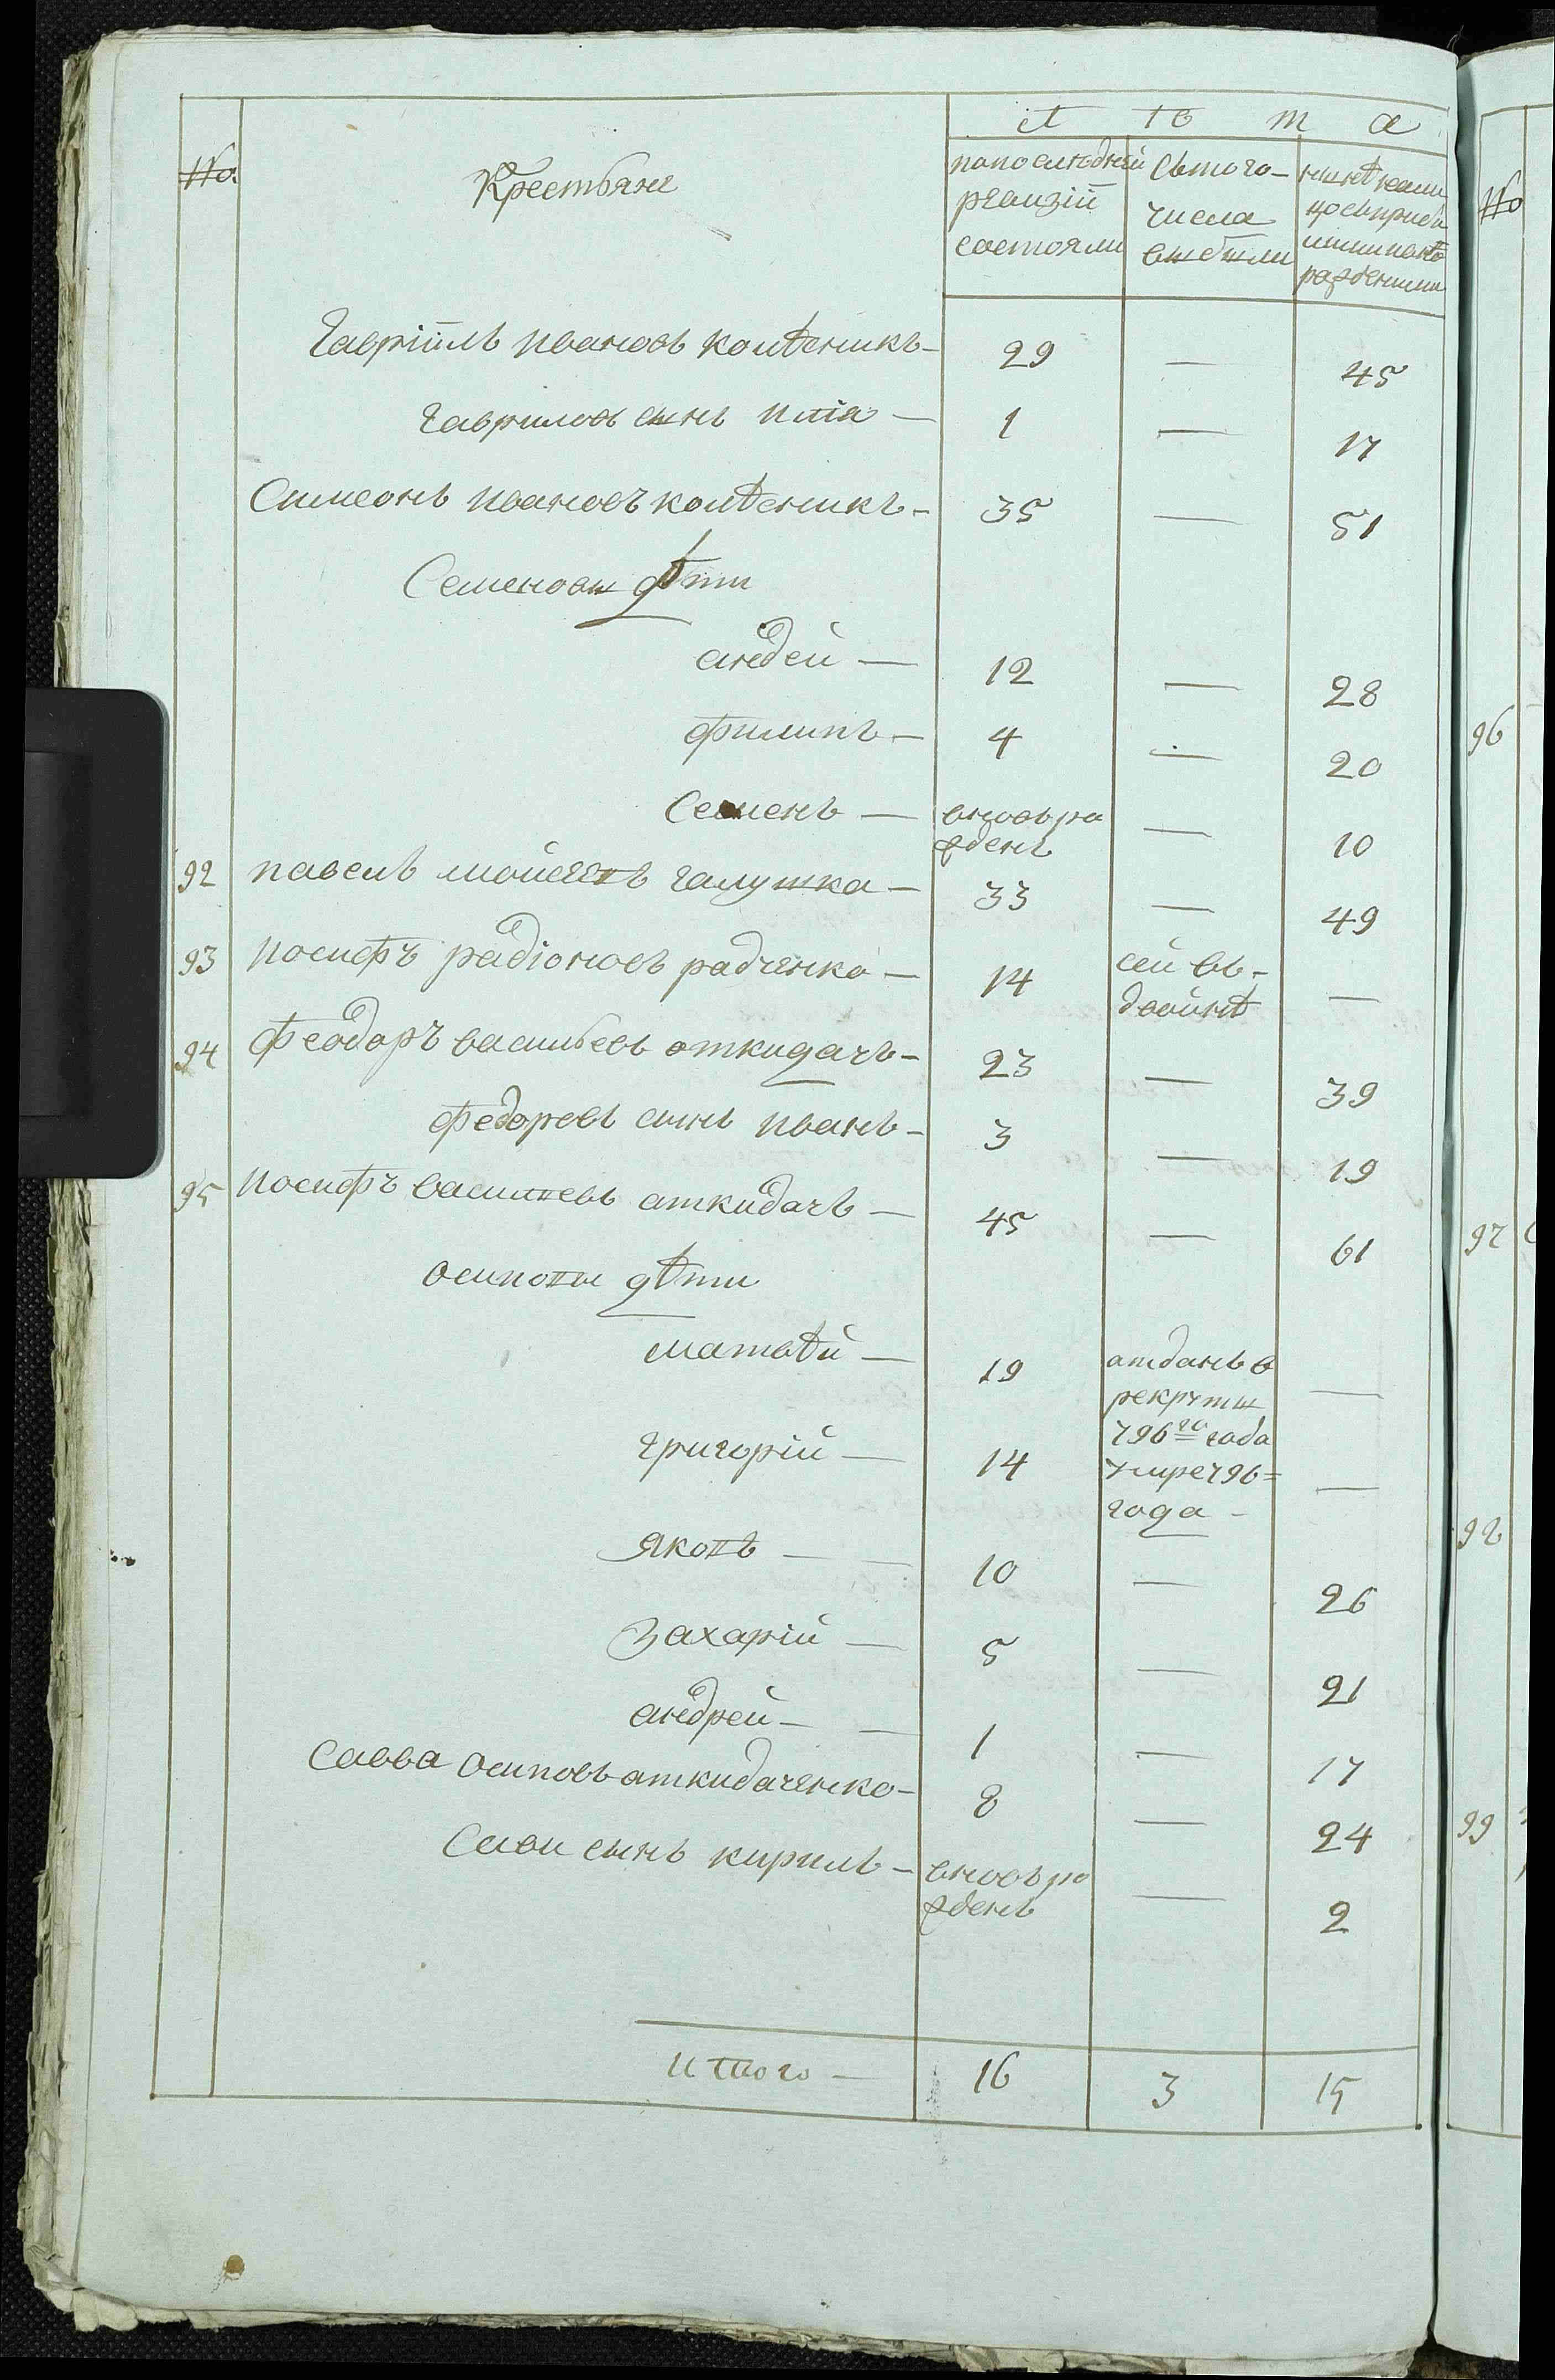 л ѣ т а
№
Крестьяне
попоследней
ревизіи
состояли
сътого-
числа
выбыли
нынѣ нали
цо съприбы
лими новѣ
рожденими
Гавріилъ ивановъ колѣсникъ— 29 — 45
гавриловъ сынъ илія — 1 — 17
Симеонъ ивановъ колѣсникъ— 35 — 51
Семеновы дѣти
андей — 12 — 28
филипъ — 4 — 20
Семенъ — вновь ро
жденъ — 10
92 павелъ мойсеевъ галушка — 33 — 49
93 иосифъ радіоновъ радченко — 14 сей въ-
двойнѣ —
94 Феодоръ васильевъ откидачъ— 23 — 39
федоровъ сынъ иванъ— 3 — 19
95 иосифъ василиевъ аткидачъ — 45 — 61
осиповы дѣти
матвѣй — 19 атданъ в
рекруты
796го года —
григорій — 14 умре 796=
года — —
яковъ — — 10 — 26
Захарій — 5 — 21
андрей — — 1 — 17
Савва осиповъ аткидаченко— 8 — 24
Савы сынъ кирилъ — вновь ро
жденъ — 2
итого — 16 3 15
№
96
97
98
99